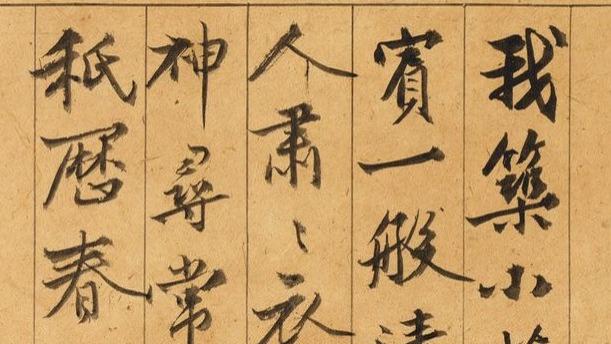 我築小
賓一般清
人肅〻衣
神尋常
秪歷春